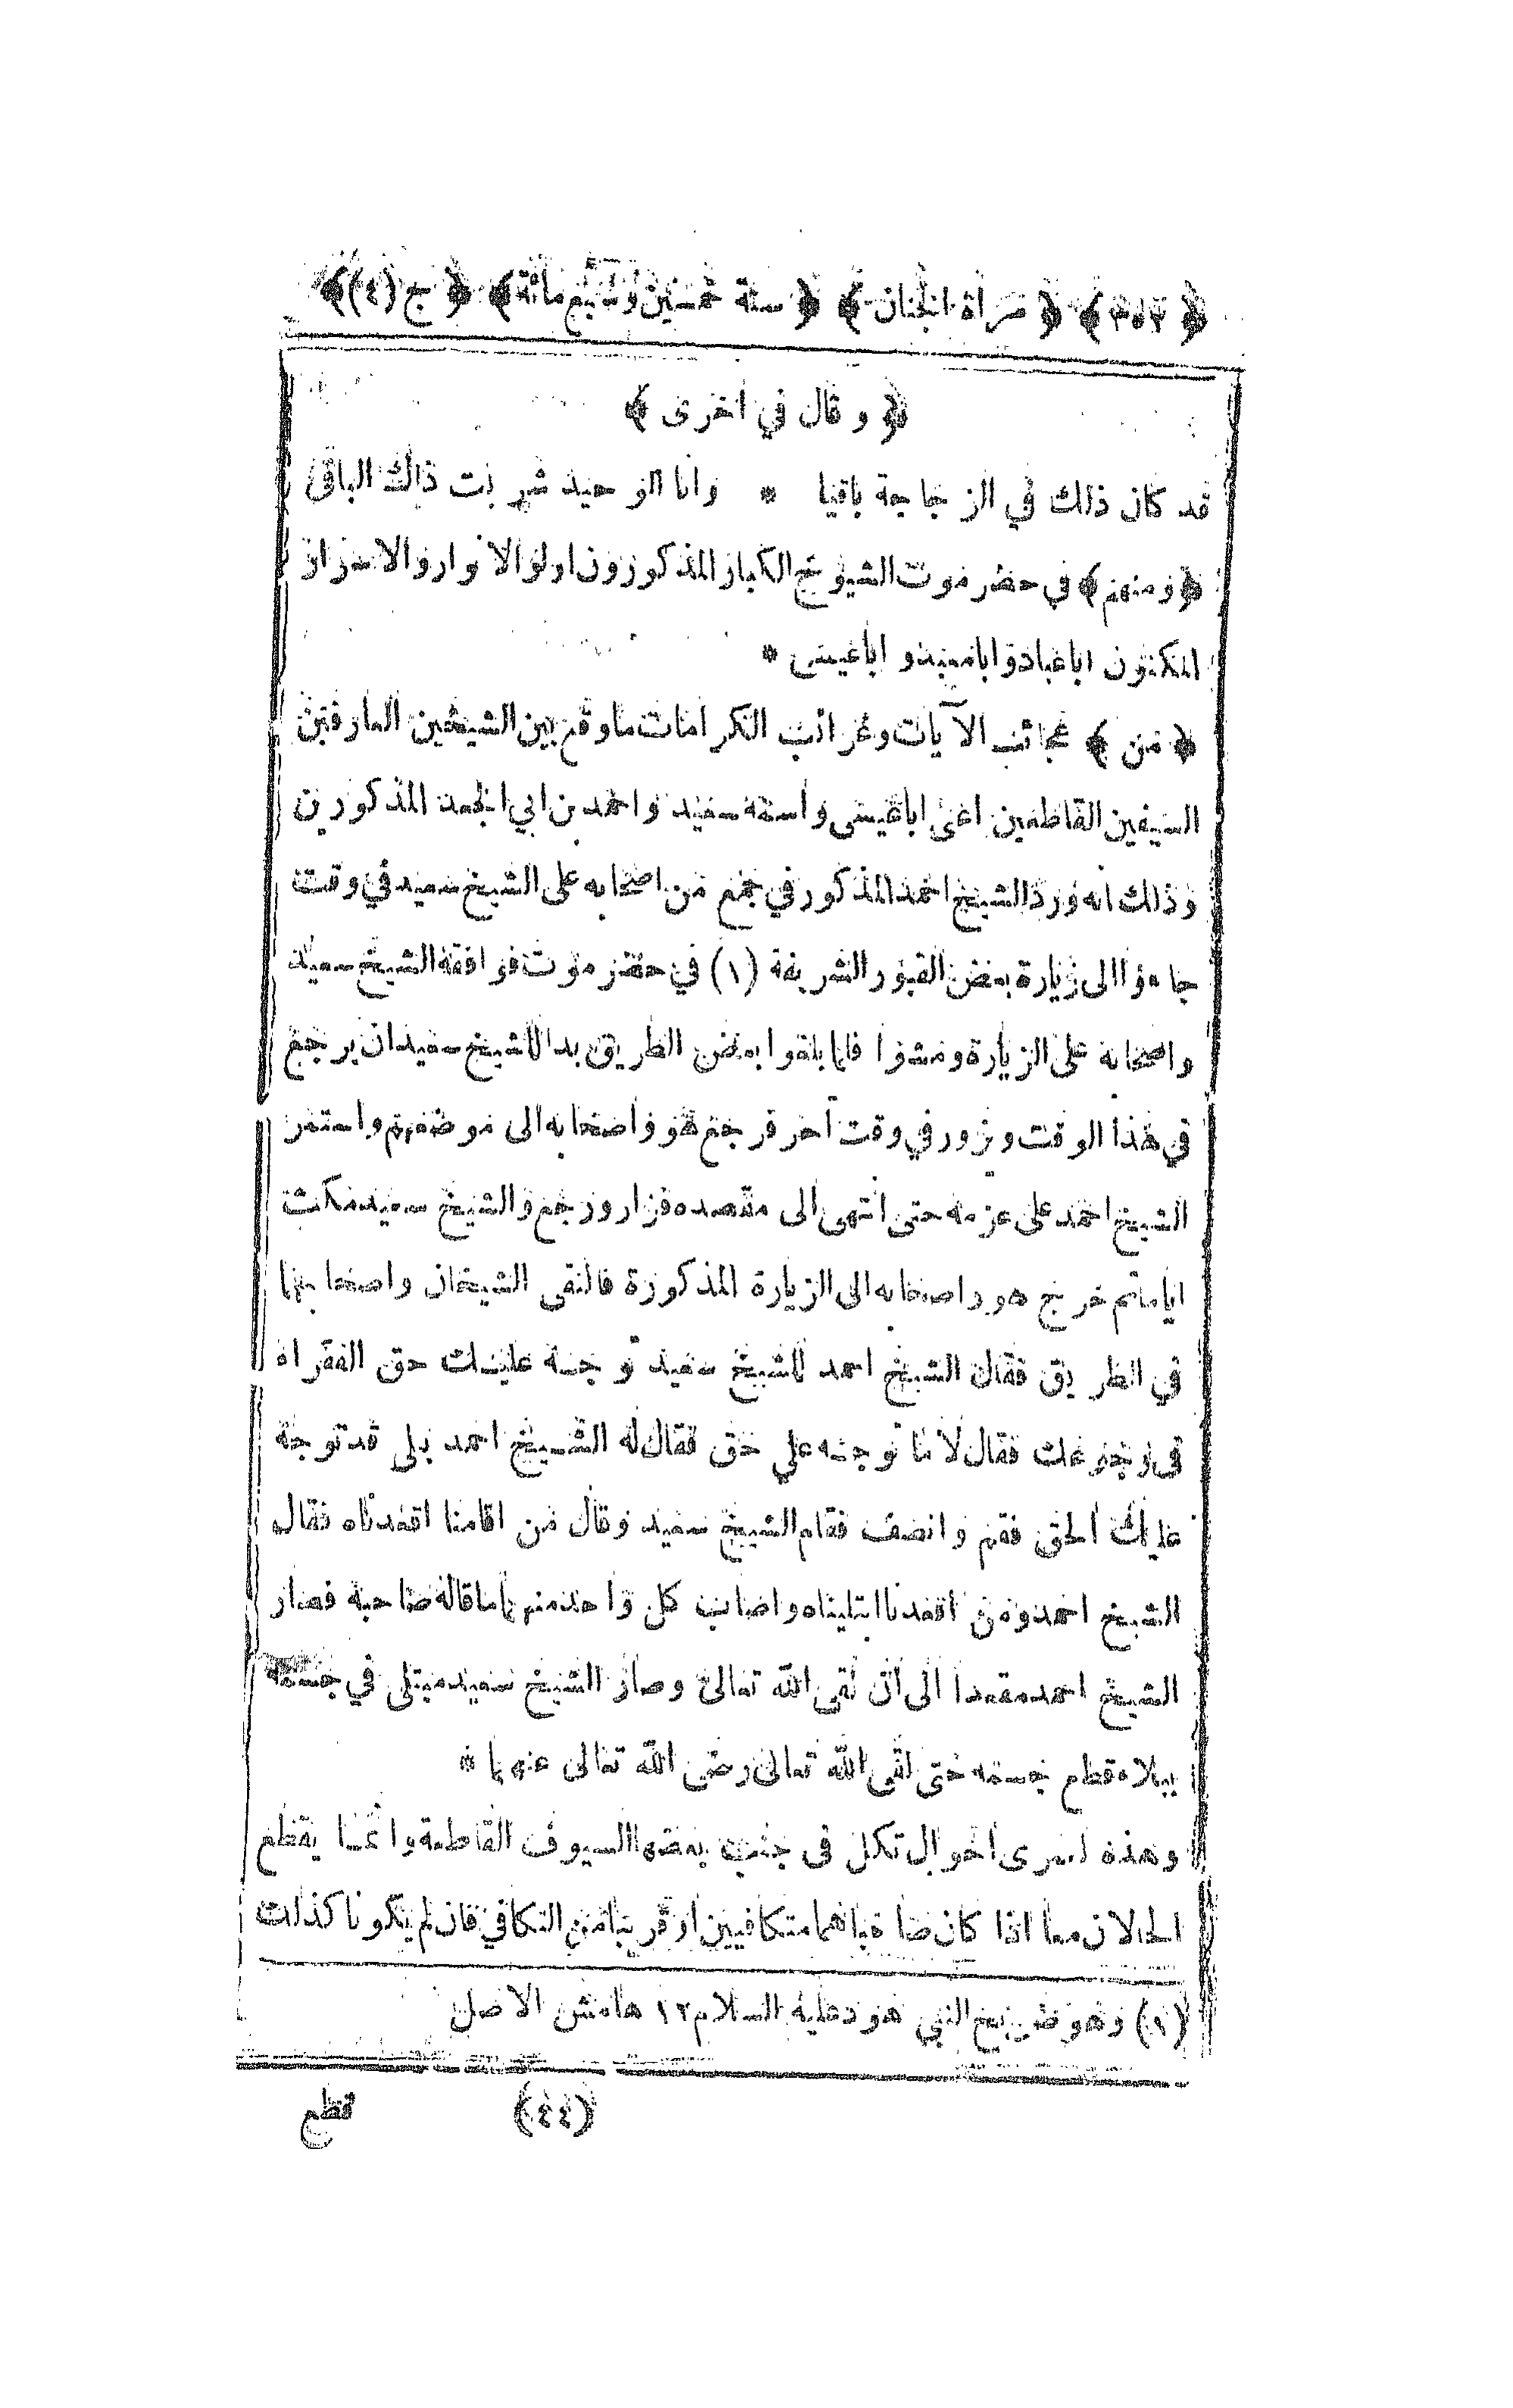 ﴿ ٣٥٣ ﴾ ﴿ مرآة الجنان ﴾ ﴿ سنة خمسين وسبع مائة ﴾ ﴿ ج (٤) ﴾
﴿ وقال في اخرى ﴾
قد كان ذلك في الزجاجة باقيا * وانا الوحيد شربت ذاك الباقي
﴿ ومنهم ﴾ في حضرموت الشيوخ الكبار المذكورون اولو الانوار والاسرار
المكنون اباعباد وابامعبد و اباعيسى *
﴿ من ﴾ عجائب الآيات وغرائب الكرامات ما وقع بين الشيخين العارفين
السيفين القاطعين اعنى اباعيسى واسمه سعيد و احمد بن ابي الجعد المذكورين
وذلك انه ورد الشيخ احمد المذكور في جمع من اصحابه على الشيخ سعيد في وقت
جاءوا الى زيارة بعض القبور الشريفة (١) في حضرموت فوافقه الشيخ سعيد
واصحابه على الزيارة ومشوا فلما بلغوا بعض الطريق بدا للشيخ سعيد ان يرجع
في هذا الوقت ويزور في وقت آخر فرجع هو واصحابه الى موضعهم واستمر
الشيخ احمد على عزمه حتى انتهى الى مقصده فزار ورجع والشيخ سعيد مكث
اياما ثم خرج هو واصحابه الى الزيارة المذكورة فالتقى الشيخان واصحابهما
في الطريق فقال الشيخ احمد للشيخ سعيد توجه عليك حق الفقراء
في رجوعك فقال لا ما توجه علي حق فقال له الشيخ احمد بلى قد توجه
عليك الحق فقم وانصف فقام الشيخ سعيد وقال من اقامنا اقعدناه فقال
الشيخ احمد ومن اقعدنا ابتليناه واصاب كل واحد منهما ما قاله صاحبه فصار
الشيخ احمد مقعدا الى ان لقى الله تعالى وصار الشيخ سعيد مبتلى في جسمه
ببلاء قطع جسمه حتى لقى الله تعالى رضى الله تعالى عنهما *
وهذه لعمرى احوال تكل في جنب بعضها السيوف القاطعة وانما يقطع
الحالان معا اذا كان صاحباهما متكافيين او قريبا من التكافي فان لم يكونا كذلك
(١) وهو ضريح النبي هود عليه السلام ١٢ هامش الاصل
(٤٤) قطع